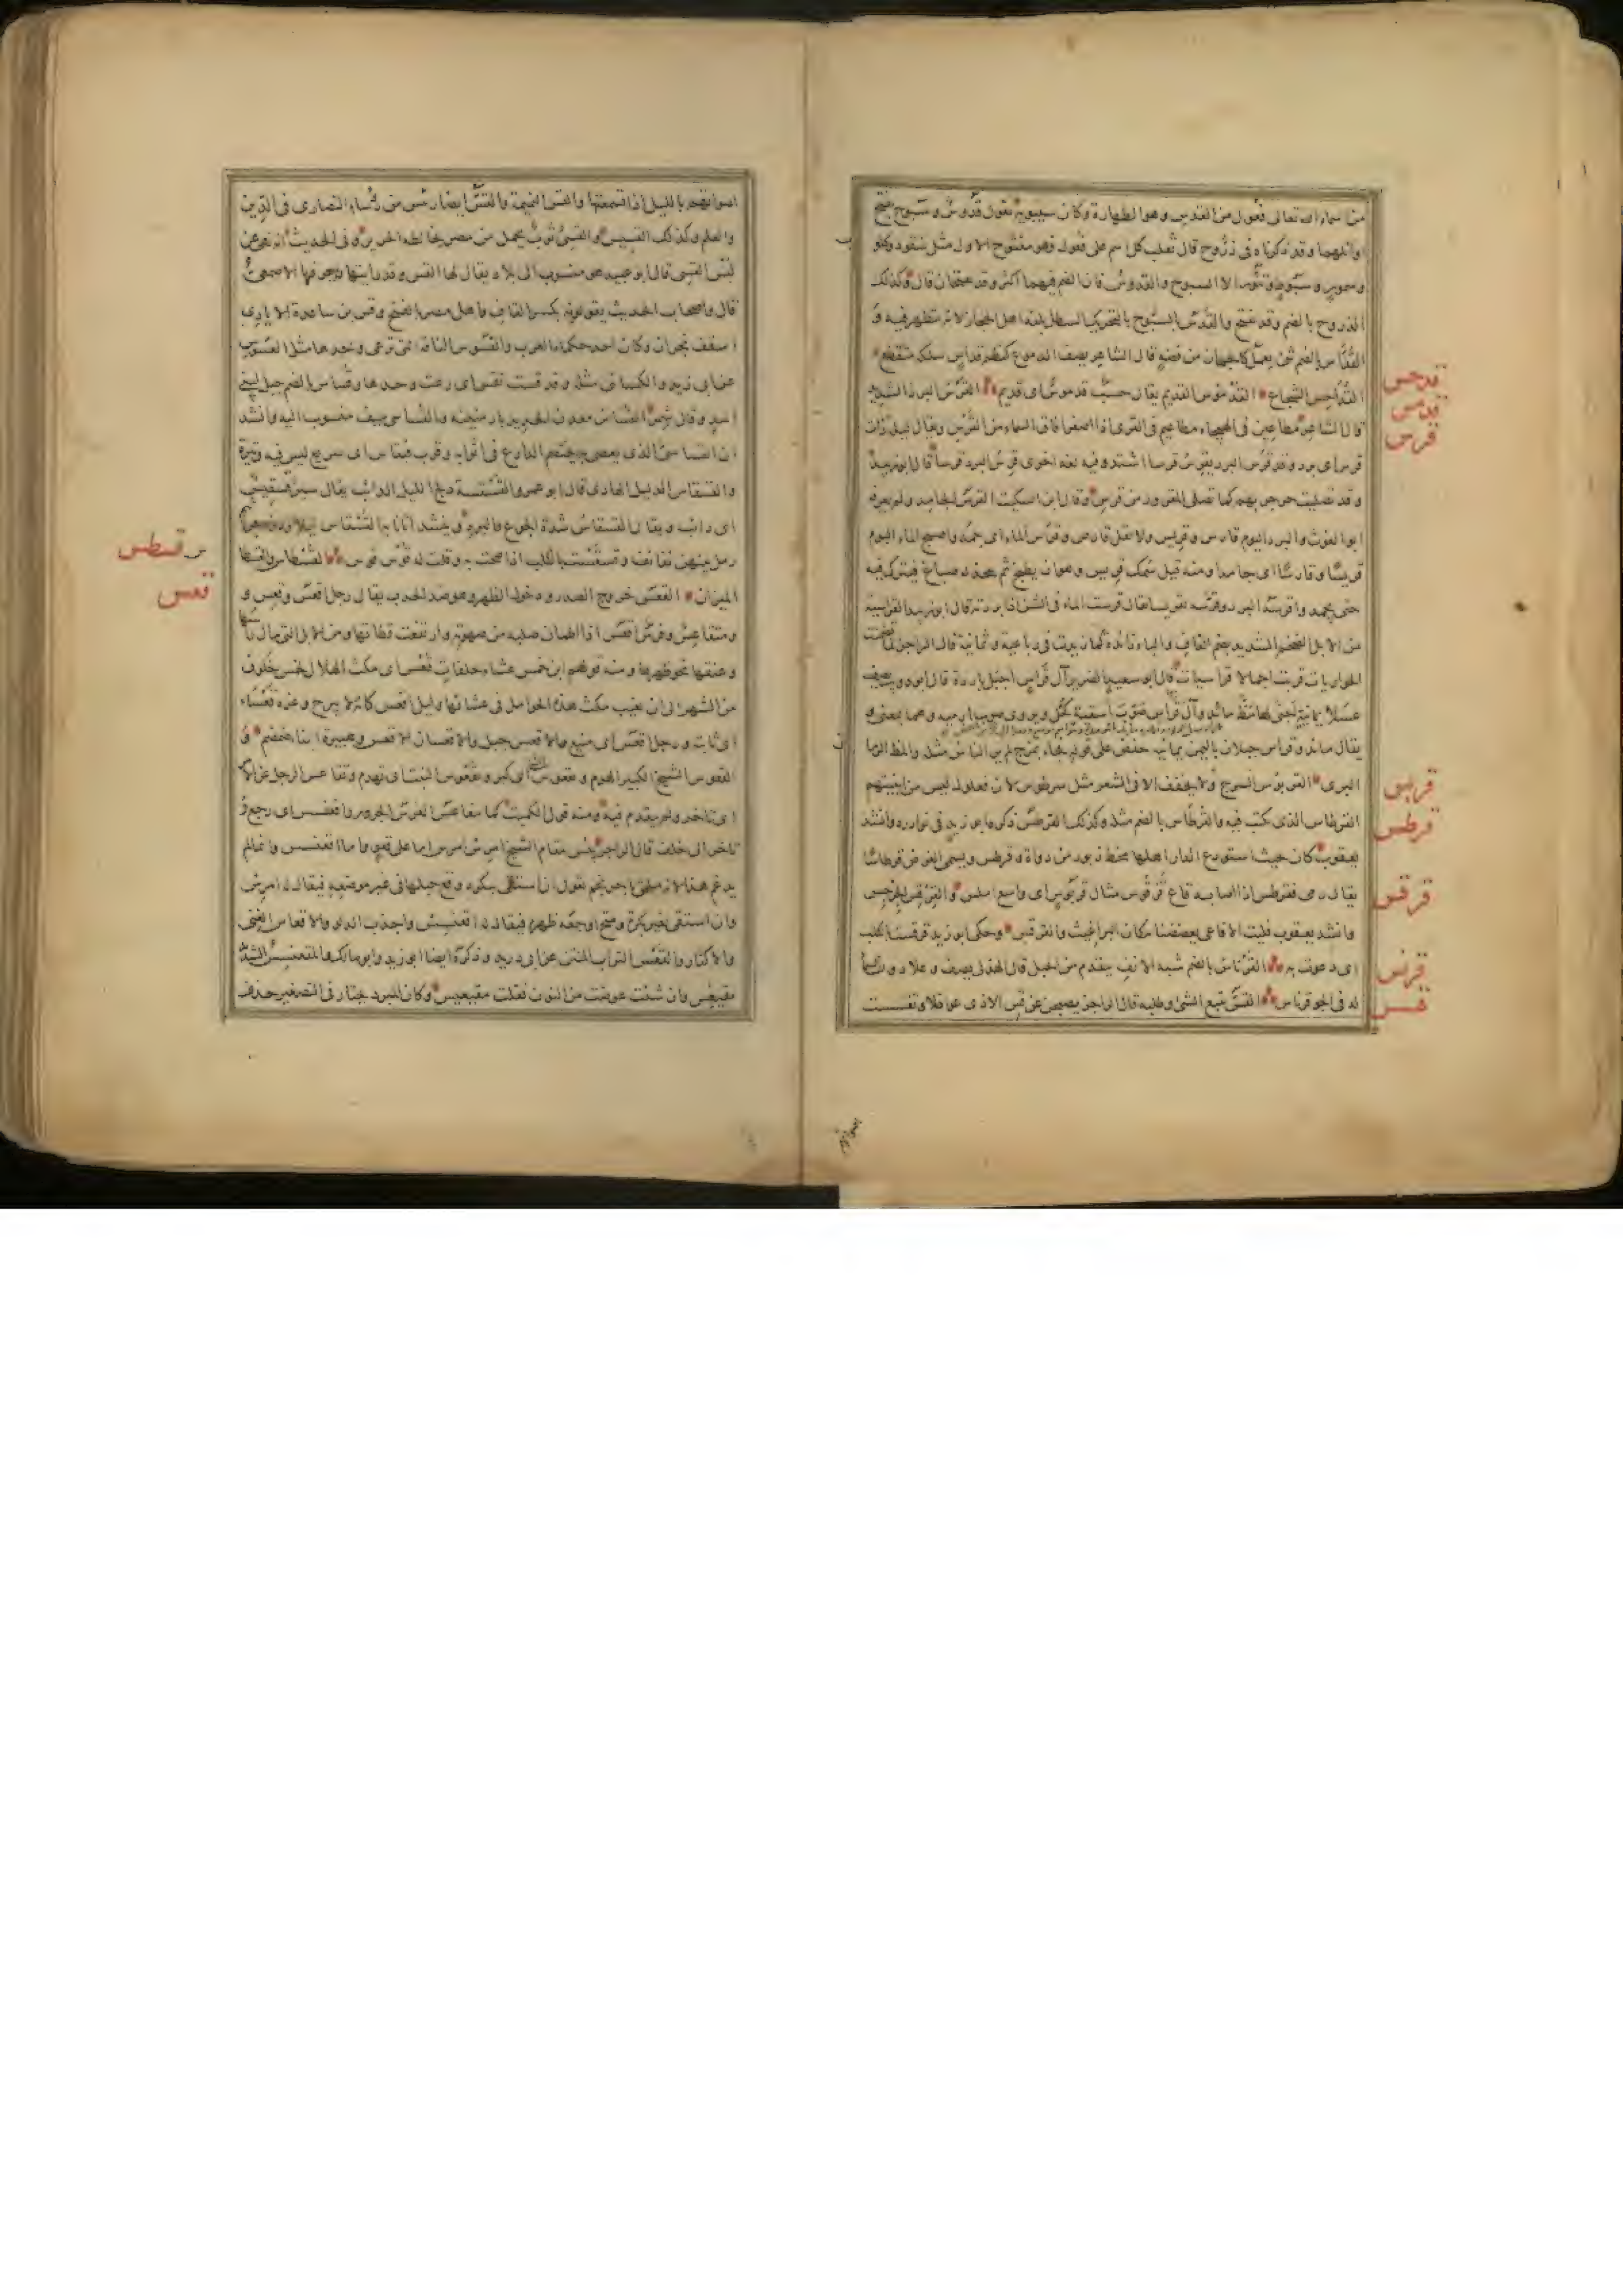 من اسماء الله تعالى فعول من القدس وهو الطهارة وكان سيبويه يقول قدوس وسبوح بفتح
اوائلهما وقد ذكرناه في ذروح قال ثعلب كل اسم على فعول فهو مفتوح الاول مثل سفود وكلوب
وسمور وسبوط وتنور الا السبوح والقدوس فان الضم فيهما اكثر وقد يفتحان قال وكذلك
الذروح بالضم وقد يفتح والقدس بالتحريك السطل بلغة اهل الحجاز لانه يتطهر فيه و
القداس بالضم شئ يعمل كالجمان من فضة قال الشاعر يصف الدموع كنظم قداس سلكه متقطع
قدحس
القداحس الشجاع القدموس القديم يقال حسب قدموس اى قديم القرس البرد الشديد
قدمس
قال الشاعر مطاعين في الهيجاء مطاعيم في القرى اذا اصفر افاق السماء من القرس ويقال ليلة ذات
قرس
قرس اى برد وقد قرس البرد يقرس قرسا اشتد وفيه لغة اخرى قرس البرد قرسا قال ابو زبيد
وقد تصليت حر حربهم كما تصلى المقرور من قرس وقال ابن السكيت القرس الجامد ولم يعرفه
ابو الغوث والبرد اليوم قارس وقريس ولا تقل قارص وقرس الماء اى جمد واصبح الماء اليوم
قريسا وقارسا اى جامدا ومنه قيل سمك قريس وهو ان يطبخ ثم يتخذ له صباغ فيترك فيه
حتى يجمد واقرسه البرد وقرسه تقريسا يقال قرست الماء في الشن اذا بردته قال ابو زيد القراسية
من الابل الضخم الشديد بضم القاف والياء زائدة كما زيدت في رباعية وثمانية قال الراجز
الحواريات قربت اجمالا قراسيات قال ابو سعيد الضرير آل قراس اجبل باردة قال ابو ذويب يصف
عسلا يمانية اجنى لها مظ مائد وآل قراس صوب اسقية كحل ويروى صوب ارمية وهما بمعنى و
يقال مائد وقراس جبلان باليمن يمانية خفض على قوله فجاء بمزج لم ير الناس مثله والمظ الرمان
البرى القربوس للسرج ولا يخفف الا في الشعر مثل طرسوس لان فعلول ليس من ابنيتهم
قربس
القرطاس الذى يكتب فيه والقرطاس بالضم مثله وكذلك القرطس ذكره ابو زيد في نوادره وانشد
قرطس
يعقوب كان بحيث استودع الدار اهلها مخط زبور من دواة وقرطس ويسمى الغرض قرطاسا
يقال رمى فقرطس اذا اصابه قاع قرقوس مثال قربوس اى واسع املس والقرقس الجرجس
قرقس
وانشد يعقوب فليت الافاعى يعضضننا مكان البراغيث والقرقس وحكى ابو زيد قرقست بالكلب
اى دعوت به القرناس بالضم شبه الانف يتقدم من الجبل قال الهذلى يصف وعلا دون السماء
قرنس
له في الجو قرناس القس تتبع الشئ وطلبه قال الراجز يصبحن عن قس الاذى غوافلا وتقسست
قسس
اصواتهم بالليل اذا تسمعتها والقس النميمة والقس ايضا رئيس من رؤساء النصارى في الدين
والعلم وكذلك القسيس والقسى ثوب يحمل من مصر يخالطه الحرير وفي الحديث انه نهى عن
لبس القسى قال ابو عبيد هو منسوب الى بلاد يقال لها القس وقد رايتها ولم يعرفها الاصمعى
قال واصحاب الحديث يقولونه بكسر القاف واهل مصر بالفتح وقس بن ساعدة الايادى
اسقف نجران وكان احد حكماء العرب والقسوس الناقة التى ترعى وحدها مثل العسوس
عن ابى زيد والكسائى مثله وقد قست تقس اى رعت وحدها وقساس بالضم جبل لبنى
اسد وقال شمر القساس معدن الحديد بارمينية والقساسى سيف منسوب اليه وانشد
ان القساسى الذى يعصى به يختصم الدارع في اثوابه وقرب قسقاس اى سريع ليس فيه وتيرة
والقسقاس الدليل الهادى قال ابو عمرو القسقسة دلج الليل الدائب يقال سير قسقيس
اى دائب ويقال القسقاس شدة الجوع والبرد وينشد اتانا به القسقاس ليلا ودونه جراثيم
رمل بينهن نفانف وقسقست بالكلب اذا صحت به وقلت له قوس قوس القسطاس والقسطاس
قسطس
الميزان القعس خروج الصدر ودخول الظهر وهو ضد الحدب يقال رجل اقعس وقعس و
قعس
ومتقاعس وفرس اقعس اذا اطمان صلبه من صهوته وارتفعت قطاته ومن الابل التى مال راسها
وعنقها نحو ظهرها ومنه قولهم ابن خمس عشاء خلفات قعس اى مكث الهلال لخمس خلون
من الشهر الى ان يغيب مكث هذه الحوامل في عشائها وليل اقعس كانه لا يبرح وعزة قعساء
اى ثابتة ورجل اقعس اى منيع والاقعس جبل والاقعسان الاقعس وهبيرة ابنا ضمضم و
القعوس الشيخ الكبير الهرم وتقعوس الشيخ اى كبر وتقعوس البيت اى تهدم وتقاعس الرجل عن الامر
اى تاخر ولم يتقدم فيه ومنه قول الكميت كما يتقاعس الفرس الجرور واقعنسس اى رجع و
تاخر الى خلف قال الراجز بئس مقام الشيخ امرس امرس اما على قعو واما اقعنسس وانما لم
يدغم هذا لانه ملحق باحرنجم يقول ان استقى ببكرة وقع حبلها في غير موضعه فيقال له امرس
وان استقى بغير بكرة ومتح اوجعه ظهره فيقال له اقعنسس واجذب الدلو والاقعاس الغنى
والاكثار والقعس التراب المنتن عن ابى دريد وذكره ايضا ابو زيد وابو مالك والمقعنسس الشديد
مقيعس وان شئت عوضت من النون فقلت مقيعيس وكان المبرد يختار في التصغير حذف